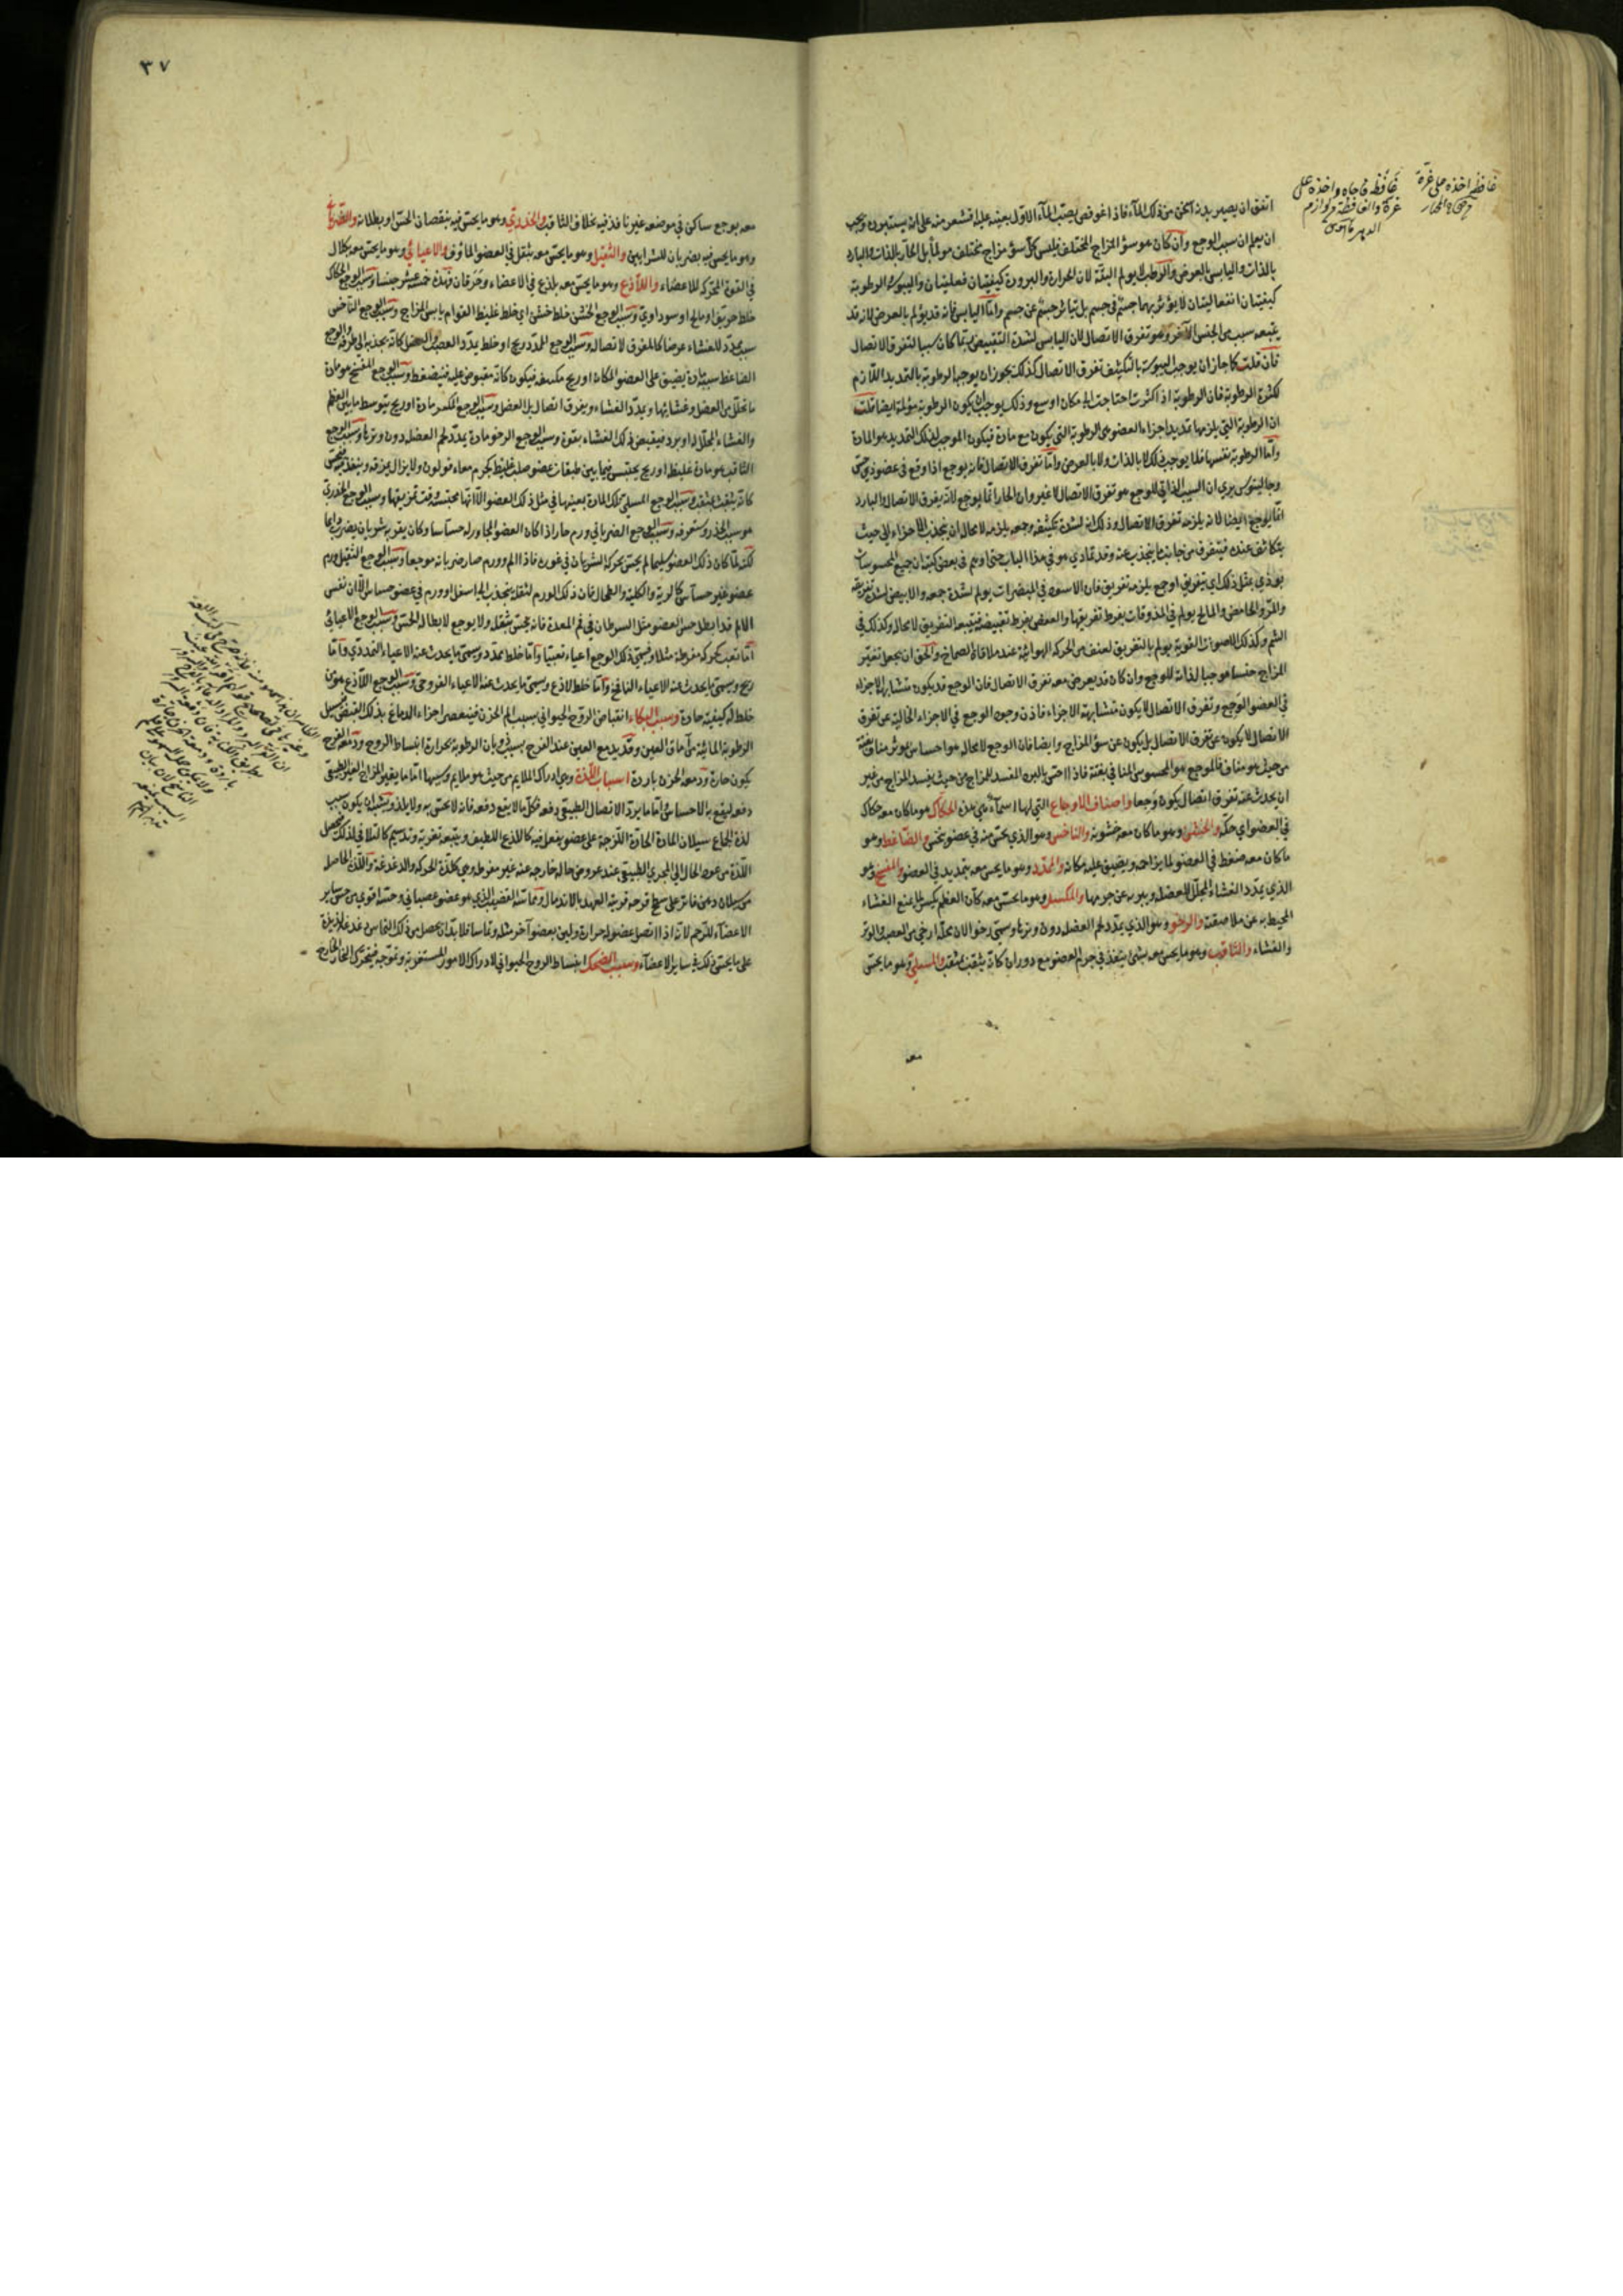 اتفق ان يصير بدنه اسخن من ذلك الماء فاذا غوفص بصب الماء الاول بعينه عليه اقشعر منه على انه يستبرده ويجب
ان يعلم ان سبب الوجع وان كان هو سؤ المزاج المختلف فليس كل سؤ مزاج مختلف مولما بل الحار بالذات والبارد
بالذات واليابس بالعرض والرطب لا يولم البتة لان الحرارة والبرودة كيفيتان فعليتان واليبوسة والرطوبة
كيفيتان انفعاليتان لا يؤثر بهما جسم في جسم بل يتأثر جسم عن جسم واما اليابس فانه قد يؤلم بالعرض لانه قد
يتبعه سبب من الجنس الآخر وهو تفرق الاتصال لان اليابس لشدة التقبيض ربما كان سببا لتفرق الاتصال
فان قلت كما جاز ان يوجب اليبوسة بالتكثيف تفرق الاتصال كذلك يجوز ان يوجبها الرطوبة بالتمديد اللازم
لكثرة الرطوبة فان الرطوبة اذا كثرت احتاجت الى مكان اوسع وذلك يوجب ان يكون الرطوبة مؤلمة ايضا قلت
ان الرطوبة التي يلزمها تمديد اجزاء العضو هي الرطوبة التي يكون مع مادة فيكون الموجب لذلك التمديد هو المادة
واما الرطوبة نفسها فلا يوجب ذلك لا بالذات ولا بالعرض واما تفرق الاتصال فانه يوجع اذا وقع في عضو ذي حس
وجالينوس يرى ان السبب الذاتي للوجع هو تفرق الاتصال لا غير وان الحار انما يوجع لانه يفرق الاتصال والبارد
انما يوجع ايضا لانه يلزمه تفرق الاتصال وذلك انه لشدة تكثيفه وجمعه يلزمه لا محالة ان يجذب الاجزاء الى حيث
يتكاثف عنده فيتفرق من جانب ما ينجذب عنه وقد تمادى هو في هذا الباب حتى اوهم في بعض كتبه ان جميع المحسوسات
يوذي بمثل ذلك اي بتفريق او جمع يلزمه تفريق فان الاسود في المبصرات يولم لشدة جمعه والابيض لشدة تفريقه
والمر والحامض والمالح يولم في المذوقات بفرط تفريقها والعفص بفرط تقبيضه فيتبعه التفريق لا محالة وكذلك في
الشم وكذلك الاصوات القوية يولم بالتفريق لعنف من الحركة الهوائية عند ملاقاة الصماخ والحق ان يجعل تغير
المزاج جنسا موجبا لذاته للوجع وان كان قد يعرض معه تفرق الاتصال فان الوجع قد يكون متشابه الاجزاء
في العضو الوجع وتفرق الاتصال لا يكون متشابهة الاجزاء فاذن وجود الوجع في الاجزاء الخالية عن تفرق
الاتصال لا يكون عن تفرق الاتصال بل يكون عن سؤ المزاج وايضا فان الوجع لا محالة هو احساس بموثر مناف بغتة
من حيث هو مناف فالموجع هو المحسوس المنافي بغتة فاذا احس بالبرد المفسد للمزاج من حيث يفسد المزاج من غير
ان يحدث عنه تفرق اتصال يكون وجعا واصناف الاوجاع التي لها اسماء هي هذه الحكاك هو ما كان معه حكاك
في العضو اي حكة والخشن وهو ما كان معه خشونة والناخس وهو الذي يحس منه في عضو بنخس والضاغط وهو
ما كان معه ضغط في العضو لما يزاحمه ويضيق عليه مكانه والممدد وهو ما يحس معه بتمديد في العضو والمفسخ وهو
الذي يمدد الغشاء المجلل للعضلة ويبريه عن جرمها والمكسر وهو ما يحس معه كأن العظم يكسر لما يمنع الغشاء
المحيط به عن ملاصقته والرخو وهو الذي يمدد لحم العضل دون وترها وسمي رخوا لان محله ارخى من العصب والوتر
والغشاء والثاقب وهو ما يحس معه بشئ ينفذ في جرم العضو مع دوران كانه يثقب بمثقب والمسلي وهو ما يحس
معه
غافظه اخذه على غرة
غافظه فاجاه واخذه على
غرة والغافظة من لوازم
الدهر قاموس
٣٧
معه بوجع ساكن في موضعه غير نافذ فيه بخلاف الثاقب والخدري وهو ما يحس فيه بنقصان الحس او بطلانه والضرباني
وهو ما يحس فيه بضربان للشرايين والثقيل وهو ما يحس معه بثقل في العضو المأوف والاعيائي وهو ما يحس معه بكلال
في القوة المحركة للاعضاء واللاذع وهو ما يحس معه بلذع في الاعضاء وحرقان فهذه خمسة عشر جنسا وسبب الوجع الحكاك
خلط حريف او مالح او سوداوي وسبب الوجع الخشن خلط خشن اي خلط غليظ القوام يابس المزاج وسبب الوجع الناخس
سبب ممدد للغشاء عرضا كالمفرق لاتصاله وسبب الوجع الممدد ريح او خلط يمدد العصب والعضل كانه يجذبه الى طرفه والوجع
الضاغط سببه مادة يضيق على العضو المكان او ريح مكتنفه فيكون كانه مقبوض عليه فينضغط وسبب الوجع المفسخ هو مادة
ما تخلل من العضل وغشائها ويمدد الغشاء ويفرق اتصاله بل العضل وسبب الوجع المكسر مادة او ريح يتوسط ما بين العظم
والغشاء المجلل له او برد فيقبض ذلك الغشاء بقوة وسبب الوجع الرخو مادة يمدد لحم العضلة دون وترها وسبب الوجع
الثاقب هو مادة غليظة او ريح يحتبس فيما بين طبقات عضو صلب غليظ كجرم معاء قولون ولا يزال يمزقه وينفذ فيه فيحس
كانه يثقب بمثقب وسبب الوجع المسلي تلك المادة بعينها في مثل ذلك العضو الا انها محتبسة وقت تمزيقها وسبب الوجع الخدري
هو سبب الخدر وستعرفه وسبب الوجع الضرباني ورم حار اذا كان العضو المجاور له حساسا وكان يقربه شريان يضرب دايما
لكنه لما كان ذلك العضو سليما لم يحس بحركة الشريان في غوره فاذا الم وورم صار ضربانه موجعا وسبب الوجع الثقيل ورم
عضو غير حساس كالرية والكلية والطحال فان ذلك الورم لثقله ينجذب الى اسفل او ورم في عضو حساس الا ان نفس
الالم قد ابطل حس العضو مثل السرطان في فم المعدة فانه يحس بثقله ولا يوجع لابطاله الحس وسبب الوجع الاعيائي
اما تعب كحركة مفرطة مثلا ويسمى ذلك الوجع اعياء تعبيا واما خلط ممدد ويسمى ما يحدث عنه الاعياء التمددي واما
ريح ويسمى ما يحدث عنه الاعياء النافخ واما خلط لاذع ويسمى ما يحدث عنه الاعياء القروحي وسبب الوجع اللاذع هو من
خلط له كيفية حادة وسبب البكاء انقباض الروح الحيواني بسبب الم الحزن فينعصر اجزاء الدماغ بذلك القبض فيسيل
الرطوبة المائية من آماق العين وقد يدمع العين عند الفرح بسبب ذوبان الرطوبة بحرارة انبساط الروح ودمعة الفرح
يكون حارة ودمعة الحزن باردة اسباب اللذة وهي ادراك الملايم من حيث هو ملايم وسببها اما ما يغير المزاج الغير الطبيعي
دفعه ليقع به الاحساس واما ما يرد الاتصال الطبيعي دفعه فكل ما لا يقع دفعه فانه لا يحس به ولا يلذ ويشبه ان يكون سبب
لذة الجماع سيلان المادة الحادة اللزجة على عضو يفعل فيه كاللذع اللطيف ويتبعه تغرية وتدسيم كالتلافي لذلك فيحصل
اللذة من عود الحال الى المجرى الطبيعي عند عروض حالة خارجة عنه غير مفرطة وهي كلذة الحركة والدغدغة واللذة الحاصلة
من سيلان دهن فاتر على سطح قرحة قريبة العهد بالاندمال ومما ستة القضيب الذي هو عضو عصباني وحسه اقوى من حس ساير
الاعضاء للرحم لانه اذا اتصل عضو له حرارة ولين بعضو آخر مثله وتماسا فلا بد ان يحصل من ذلك التماس دغدغة لذيذة
على ما يحس ذلك في ساير الاعضاء وسبب الضحك انبساط الروح الحيواني لادراك الامور المستغربة وتموجه فيتحرك البخار الخارج